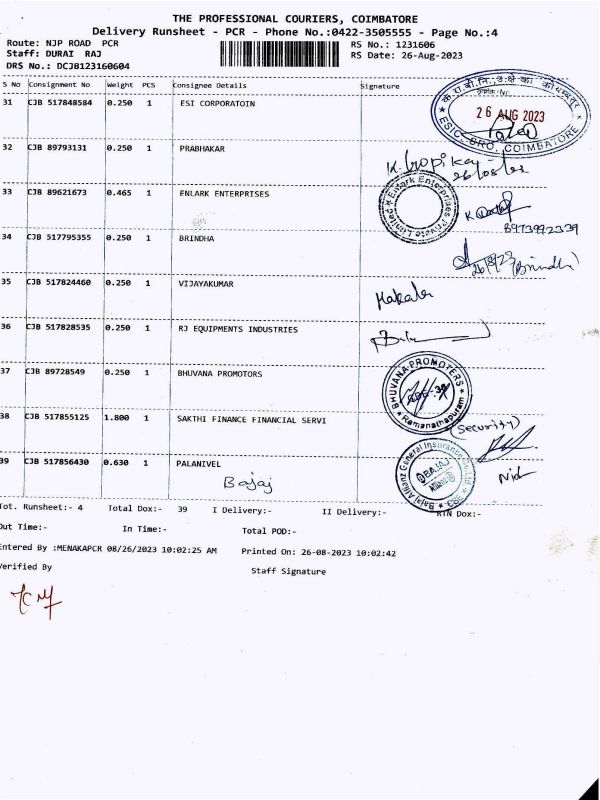 THE PROFESSIONAL COURIERS, COIMBATORE
Delivery Runsheet - PCR - Phone No.:0422-3505555 - Page No.:4
Route: NJP ROAD PCR RS No.: 1231606
Staff: DURAI RAJ RS Date: 26-Aug-2023
DRS No.: DCJB123160604
S No Consignment No Weight PCS Consignee Details Signature
31 CJB 517848584 0.250 1 ESI CORPORATOIN
26 AUG 2023
ESIC-SRO, COIMBATORE
32 CJB 89793131 0.250 1 PRABHAKAR
33 CJB 89621673 0.465 1 ENLARK ENTERPRISES
Enlark Enterprises Private Limited
8973992339
34 CJB 517795355 0.250 1 BRINDHA
(Brindha)
35 CJB 517824460 0.250 1 VIJAYAKUMAR
36 CJB 517828535 0.250 1 RJ EQUIPMENTS INDUSTRIES
37 CJB 89728549 0.250 1 BHUVANA PROMOTORS
BHUVANA PROMOTERS
Ramanathapuram
38 CJB 517855125 1.800 1 SAKTHI FINANCE FINANCIAL SERVI
(Security)
39 CJB 517856430 0.630 1 PALANIVEL
Bajaj
Bajaj Allianz General Insurance
BAJAJ
Tot. Runsheet:- 4 Total Dox:- 39 I Delivery:- II Delivery:- RTN Dox:-
Out Time:- In Time:- Total POD:-
Entered By :MENAKAPCR 08/26/2023 10:02:25 AM Printed On: 26-08-2023 10:02:42
Verified By Staff Signature